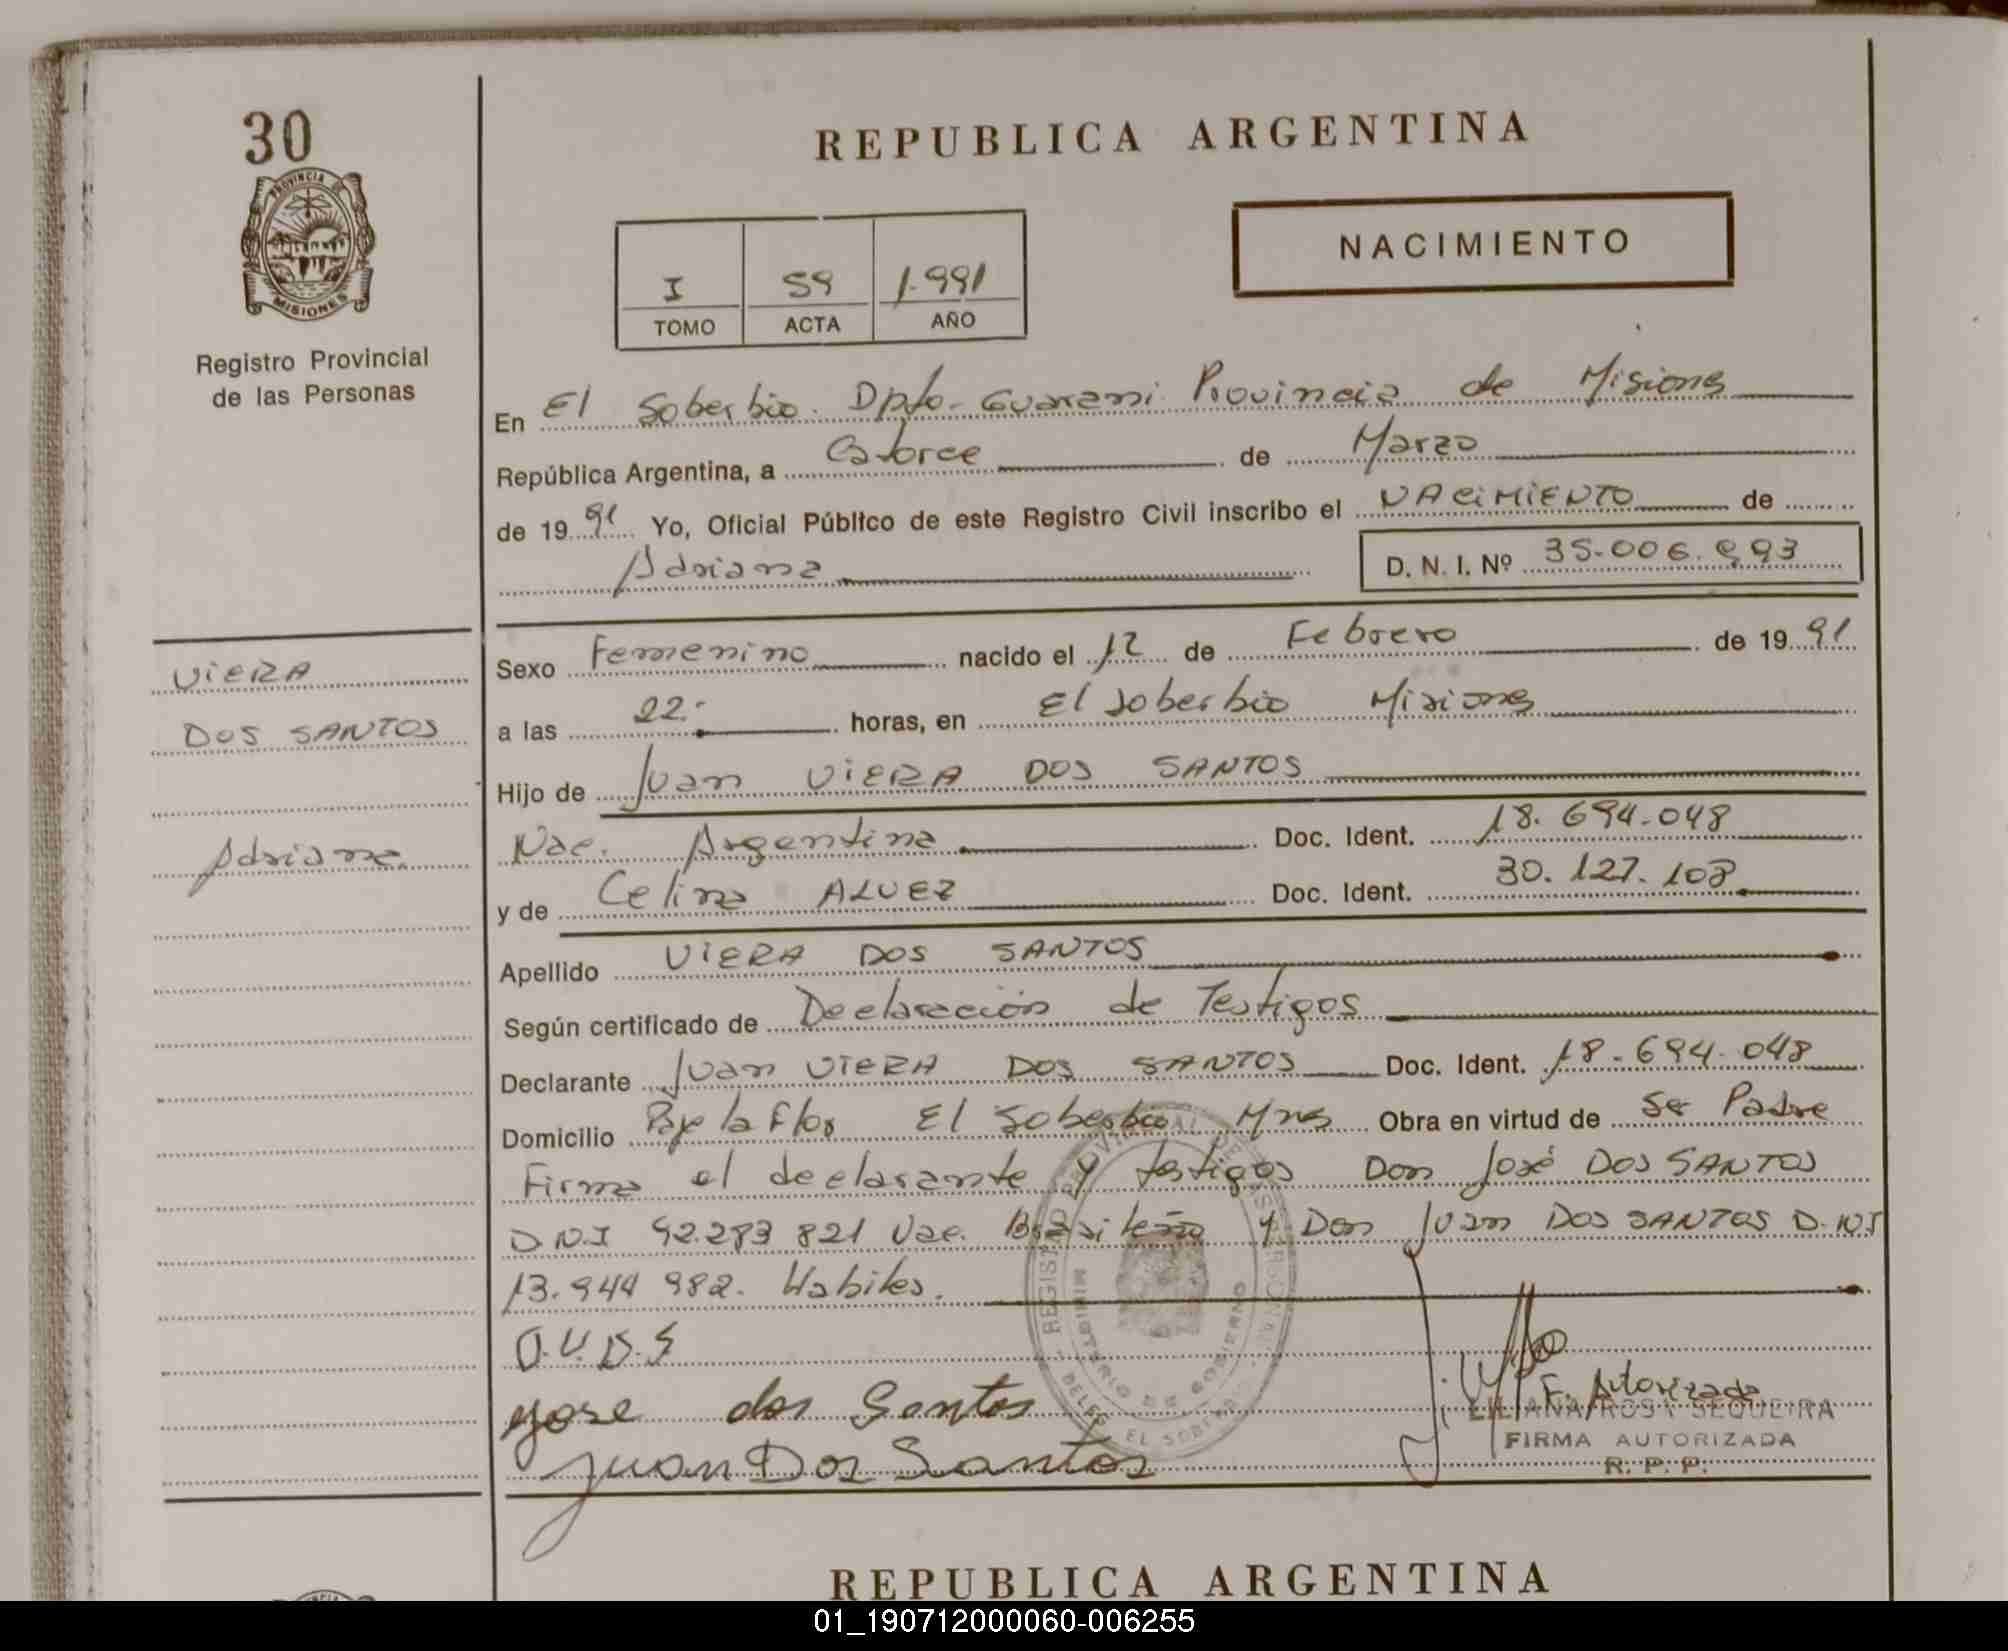 30
REPUBLICA ARGENTINA
PROVINCIA DE
MISIONES
NACIMIENTO
I 59 1.991
TOMO ACTA AÑO
Registro Provincial
de las Personas
En El Soberbio. Dpto- Guarani Provincia de Misiones
República Argentina, a Catorce de Marzo
de 19 91 Yo, Oficial Público de este Registro Civil inscribo el NACIMIENTO de
Adriana D. N. I. Nº 35.006.993
VIERA
DOS SANTOS
Adriana
Sexo Femenino nacido el 12 de Febrero de 19 91
a las 22.- horas, en El Soberbio Misiones
Hijo de Juan VIERA DOS SANTOS
Nac. Argentina Doc. Ident. 18.694.048
y de Celina ALVEZ Doc. Ident. 30.127.108
Apellido VIERA DOS SANTOS
Según certificado de Declaración de Testigos
Declarante Juan VIERA DOS SANTOS Doc. Ident. 18.694.048
Domicilio Pje la Flor El Soberbio Mnes Obra en virtud de Ser Padre
Firma el declarante y testigos Don José DOS SANTOS
D.N.I 92.283 821 Nac. Brasileño y Don Juan DOS SANTOS D.NI
13.944 982. Habiles.
J.V.D.S
REGISTRO PROVINCIAL DE LAS PERSONAS
MINISTERIO DE GOBIERNO
DELEG. EL SOBERBIO
Jose dos Santos
Juan Dos Santos
F. Autorizada
LILIANA ROSA SEQUEIRA
FIRMA AUTORIZADA
R. P. P.
REPUBLICA ARGENTINA
01_190712000060-006255